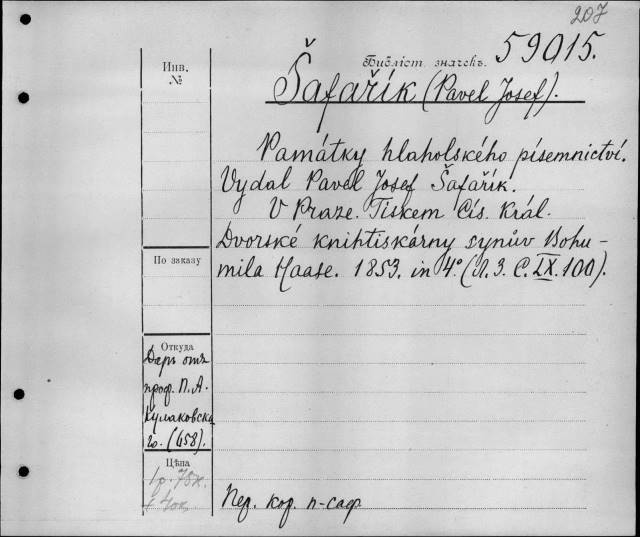 207
Библіот. значекъ. 59015.
Инв.
№
Šafařík (Pavel Josef).
Památky hlaholského písemnictví.
Vydal Pavel Josef Šafařík.
V Praze. Tiskem Cís. Král.
Dvorské knihtiskárny synův Bohu-
mila Haase. 1853. in 4º. (Л. З. С. IX. 100).
По заказу
Откуда
Даръ отъ
проф. П. А.
Кулаковска
го. (658).
Цѣна
1р. 78к.
40к
Пер. кор. п-саф.